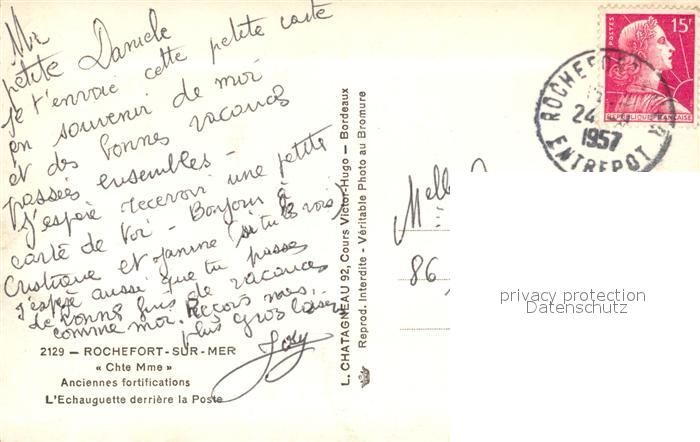 Ma
petite Daniele
je t'envoie cette petite carte
en souvenir de moi
et des bonnes vacances
passées ensembles -
J'espère recevoir une petite
carte de toi - Bonjour à
Cristiane et Janine (si tu les vois)
J'espère aussi que tu passes
de bonnes fins de vacances
comme moi. Reçois mes
plus gros baisers
Josy
2129 — ROCHEFORT-SUR-MER
« Chte Mme »
Anciennes fortifications
L'Echauguette derrière la Poste
L. CHATAGNEAU 92, Cours Victor-Hugo — Bordeaux
Reprod. Interdite - Véritable Photo au Bromure
POSTES
15F
REPUBLIQUE FRANÇAISE
ROCHEFORT
24
1957
ENTREPOT
Melle
86
privacy protection
Datenschutz